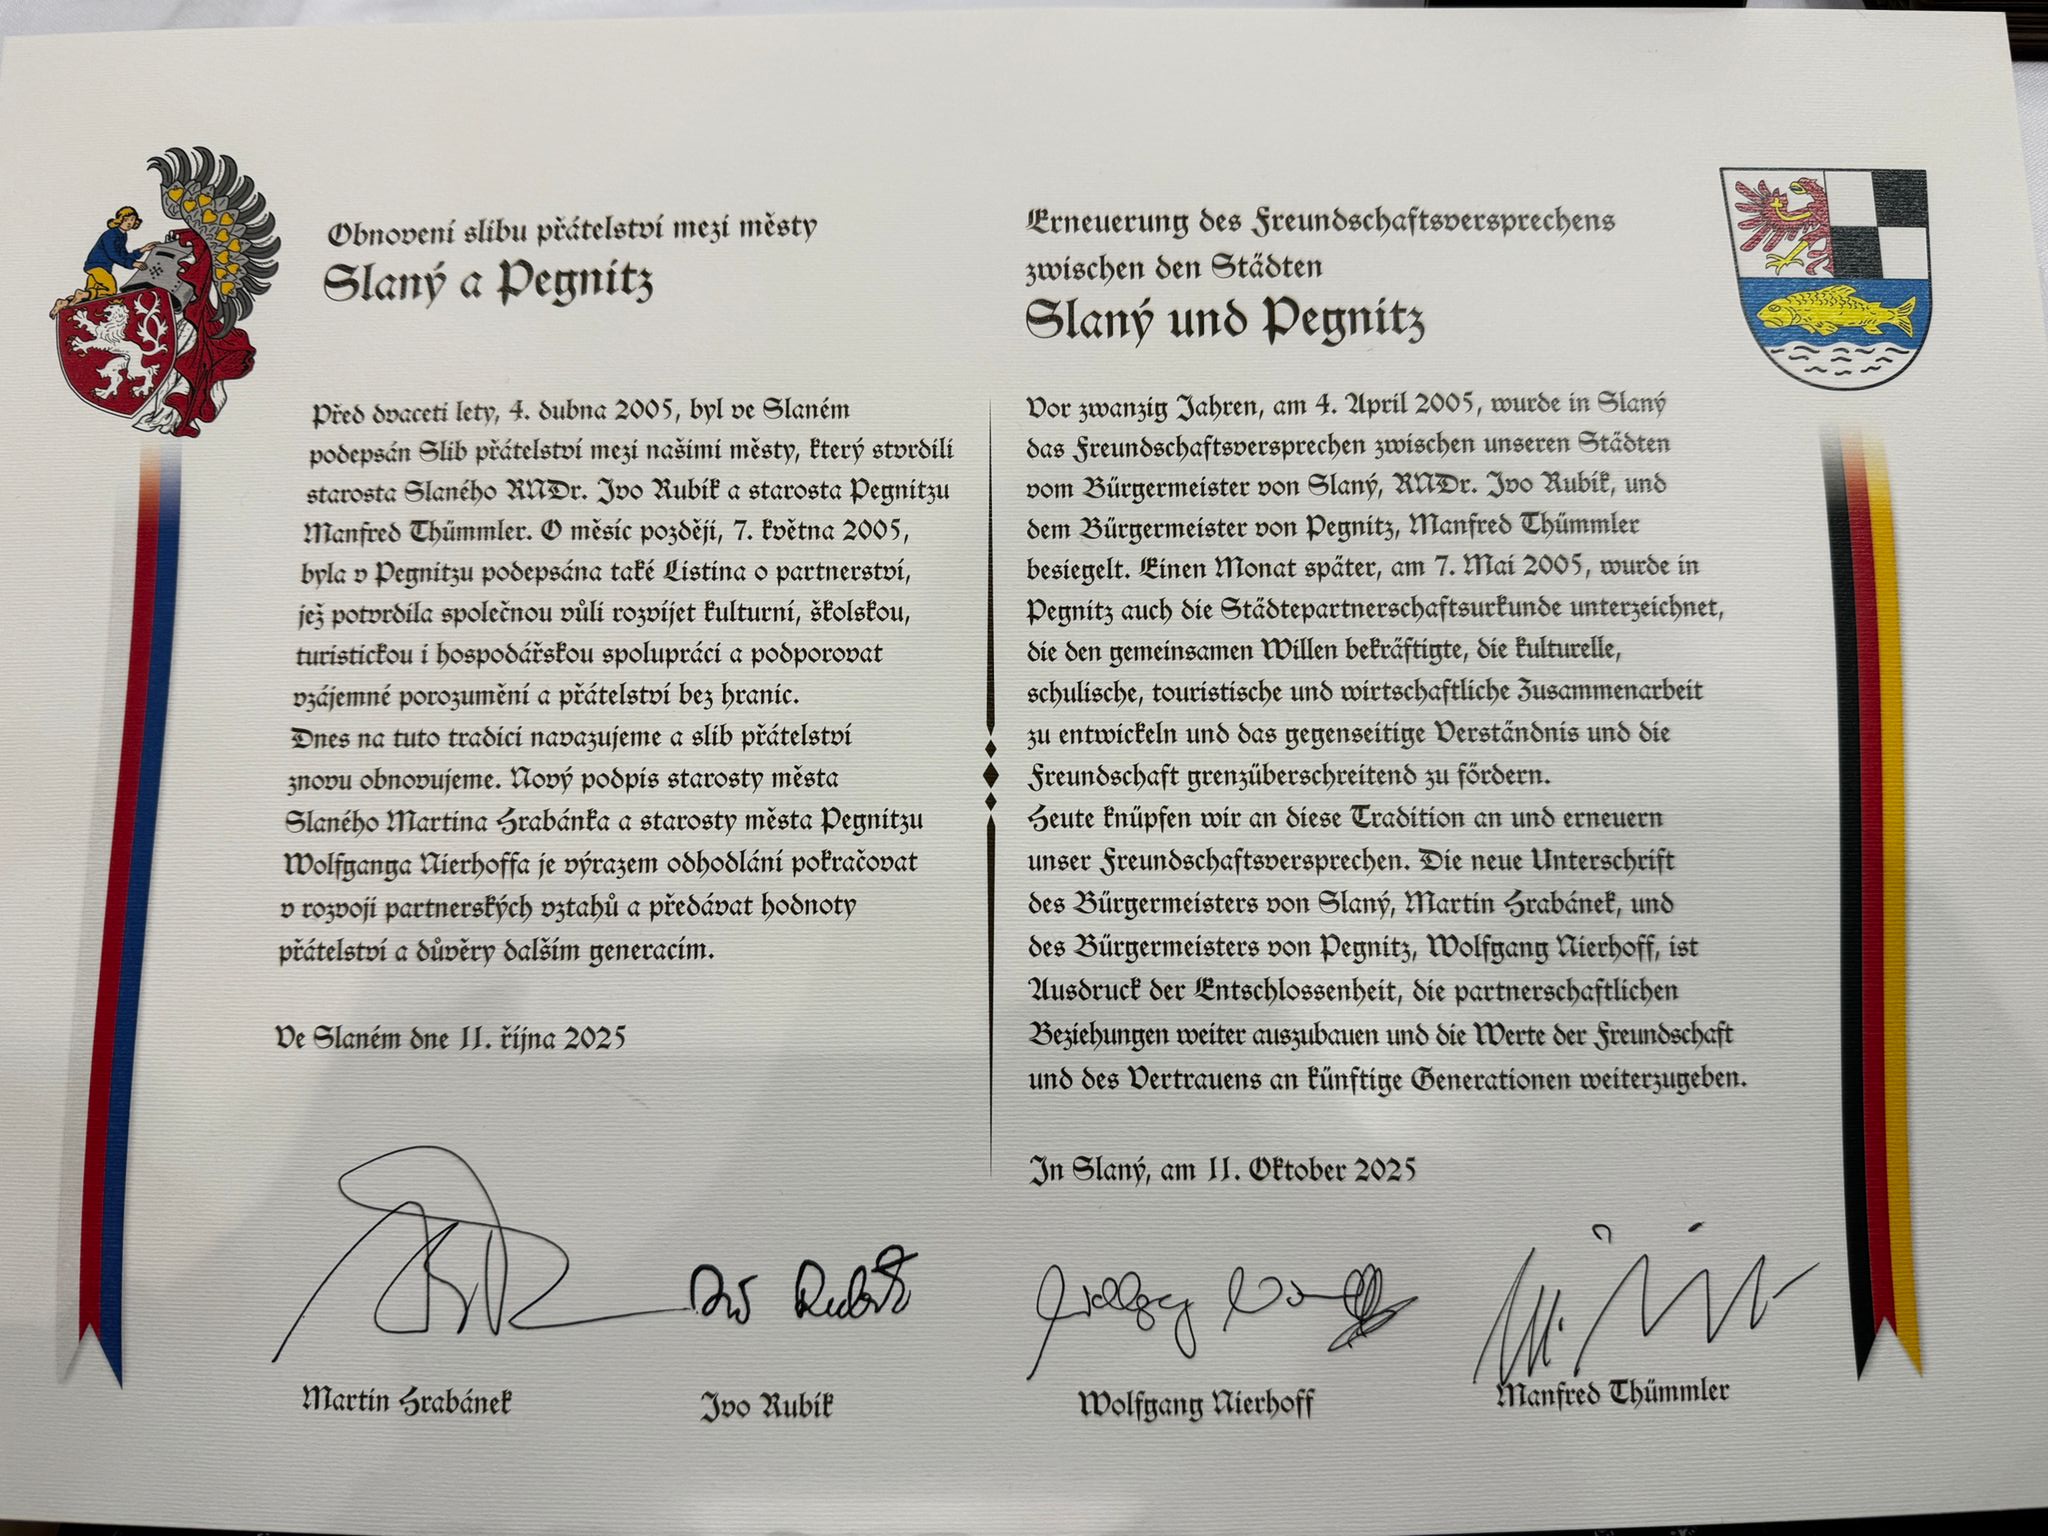 Obnovení slibu přátelství mezi městy
Slaný a Pegnitz
Před dvaceti lety, 4. dubna 2005, byl ve Slaném
podepsán Slib přátelství mezi našimi městy, který stvrdili
starosta Slaného RNDr. Ivo Rubík a starosta Pegnitzu
Manfred Thümmler. O měsíc později, 7. května 2005,
byla v Pegnitzu podepsána také Listina o partnerství,
jež potvrdila společnou vůli rozvíjet kulturní, školskou,
turistickou i hospodářskou spolupráci a podporovat
vzájemné porozumění a přátelství bez hranic.
Dnes na tuto tradici navazujeme a slib přátelství
znovu obnovujeme. Nový podpis starosty města
Slaného Martina Hrabánka a starosty města Pegnitzu
Wolfganga Nierhoffa je výrazem odhodlání pokračovat
v rozvoji partnerských vztahů a předávat hodnoty
přátelství a důvěry dalším generacím.
Ve Slaném dne 11. října 2025
Erneuerung des Freundschaftsversprechens
zwischen den Städten
Slaný und Pegnitz
Vor zwanzig Jahren, am 4. April 2005, wurde in Slaný
das Freundschaftsversprechen zwischen unseren Städten
vom Bürgermeister von Slaný, RNDr. Ivo Rubík, und
dem Bürgermeister von Pegnitz, Manfred Thümmler
besiegelt. Einen Monat später, am 7. Mai 2005, wurde in
Pegnitz auch die Städtepartnerschaftsurkunde unterzeichnet,
die den gemeinsamen Willen bekräftigte, die kulturelle,
schulische, touristische und wirtschaftliche Zusammenarbeit
zu entwickeln und das gegenseitige Verständnis und die
Freundschaft grenzüberschreitend zu fördern.
Heute knüpfen wir an diese Tradition an und erneuern
unser Freundschaftsversprechen. Die neue Unterschrift
des Bürgermeisters von Slaný, Martin Hrabánek, und
des Bürgermeisters von Pegnitz, Wolfgang Nierhoff, ist
Ausdruck der Entschlossenheit, die partnerschaftlichen
Beziehungen weiter auszubauen und die Werte der Freundschaft
und des Vertrauens an künftige Generationen weiterzugeben.
In Slaný, am 11. Oktober 2025
Martin Hrabánek
Ivo Rubík
Wolfgang Nierhoff
Manfred Thümmler